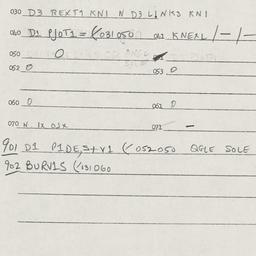 030 D3 REXT1 KN1 N D3 LINKS KN1
040 D1 PJOT1 = (031050 041 KNEXL /-/-
050 0
052 0 053 0
060 0 061 0
070 N. 1X 071 -
901 D1 P1DE,S+V1 (052050 QGLE SOLE
902 BURV1S (131060